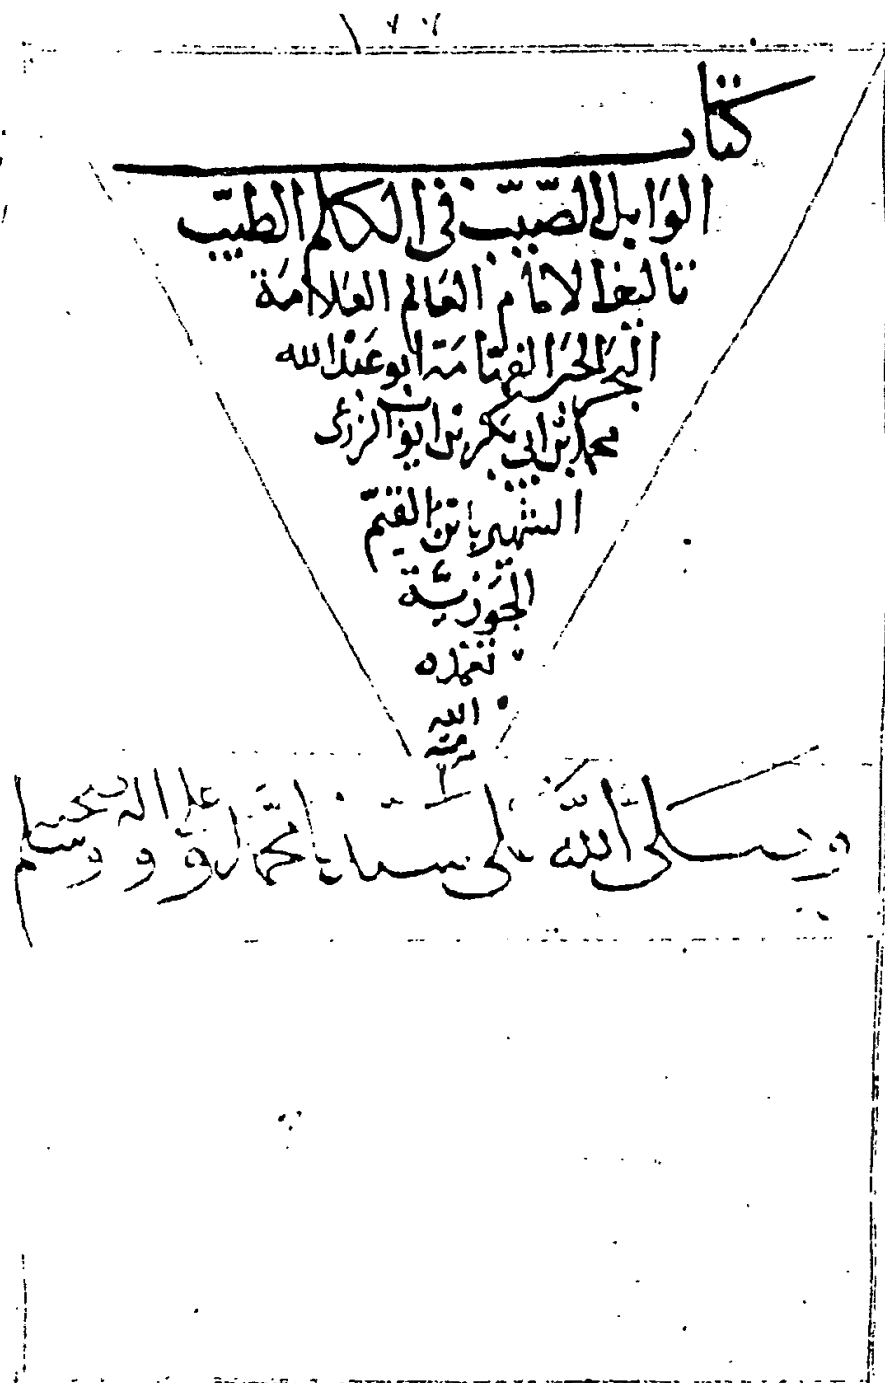 ١٧٧
كتاب
الوابل الصيّب في الكلم الطيّب
تاليف الامام العالم العلامة
البحر الحبر الفهّامة ابو عبد الله
محمد بن ابي بكر بن ايوب الزرعي
الشهير بابن القيّم
الجوزيّة
تغمده
الله
وصلى الله على سيدنا محمد و على اله وصحبه وسلم